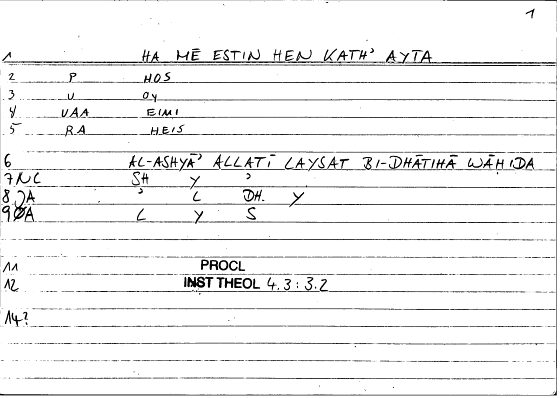 1
1 HA MĒ ESTIN HEN KATH' AYTA
2 P HOS
3 U OY
4 UAA EIMI
5 RA HEIS
6 AL-ASHYĀ' ALLATĪ LAYSAT BI-DHĀTIHĀ WĀḤIDA
7 NC SH Y '
8 JA ' L DH. Y
9 ØA L Y S
11 PROCL
12 INST THEOL 4.3 : 3.2
14?